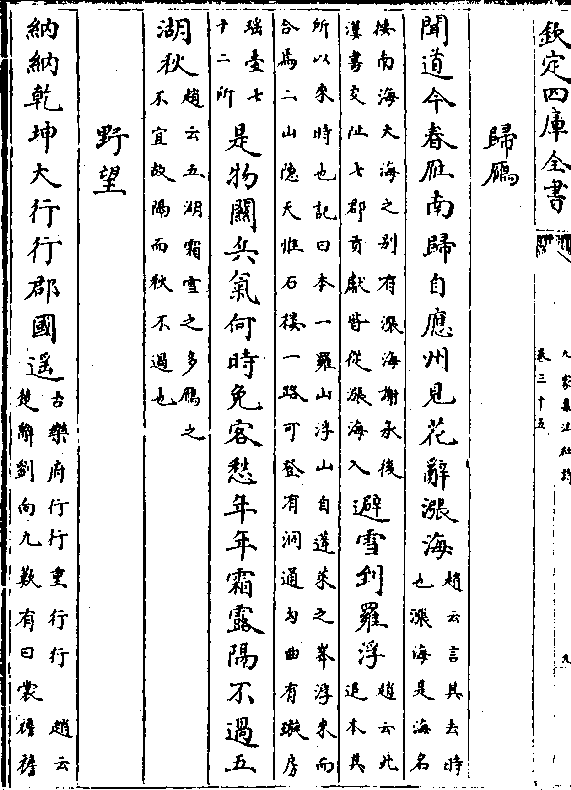 欽定四庫全書
九家集注杜詩
卷三十五
九
歸鴈
聞道今春雁南歸自應州見花辭漲海趙云言其去時
也漲海是海名
接南海大海之别有漲海謝承後
漢書交阯七郡貢獻皆從漲海入避雪到羅浮趙云此
追本其
所以來時也記曰本一羅山浮山自蓬萊之峯浮來而
合為二山隠天惟石樓一路可登有洞通句曲有璇房
瑶臺七
十二所是物關兵氣何時免客愁年年霜露隔不過五
湖秋趙云五湖霜雪之多鴈之
不宜故隔而秋不過也
野望
納納乾坤大行行郡國遥古樂府行行重行行趙云
楚辭劉向九歎有曰裳襜襜